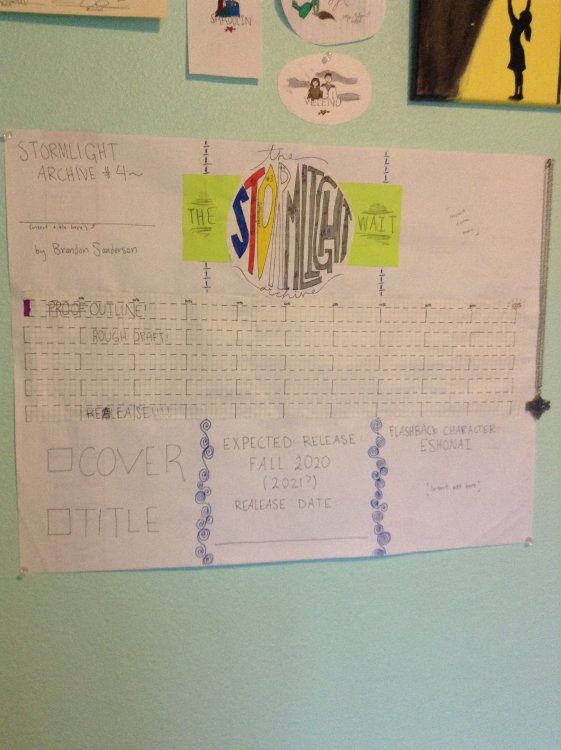 SHADOLIN
VELEND
STORMLIGHT
ARCHIVE #4~
(insert title here)
by Brandon Sanderson
THE
the
STORMLIGHT
archive
WAIT
PROOF OUTLINE!
ROUGH DRAFT!
RELEASE!!!!
COVER
TITLE
EXPECTED RELEASE
FALL 2020
(2021?)
REALEASE DATE
FLASHBACK CHARACTER:
ESHONAI